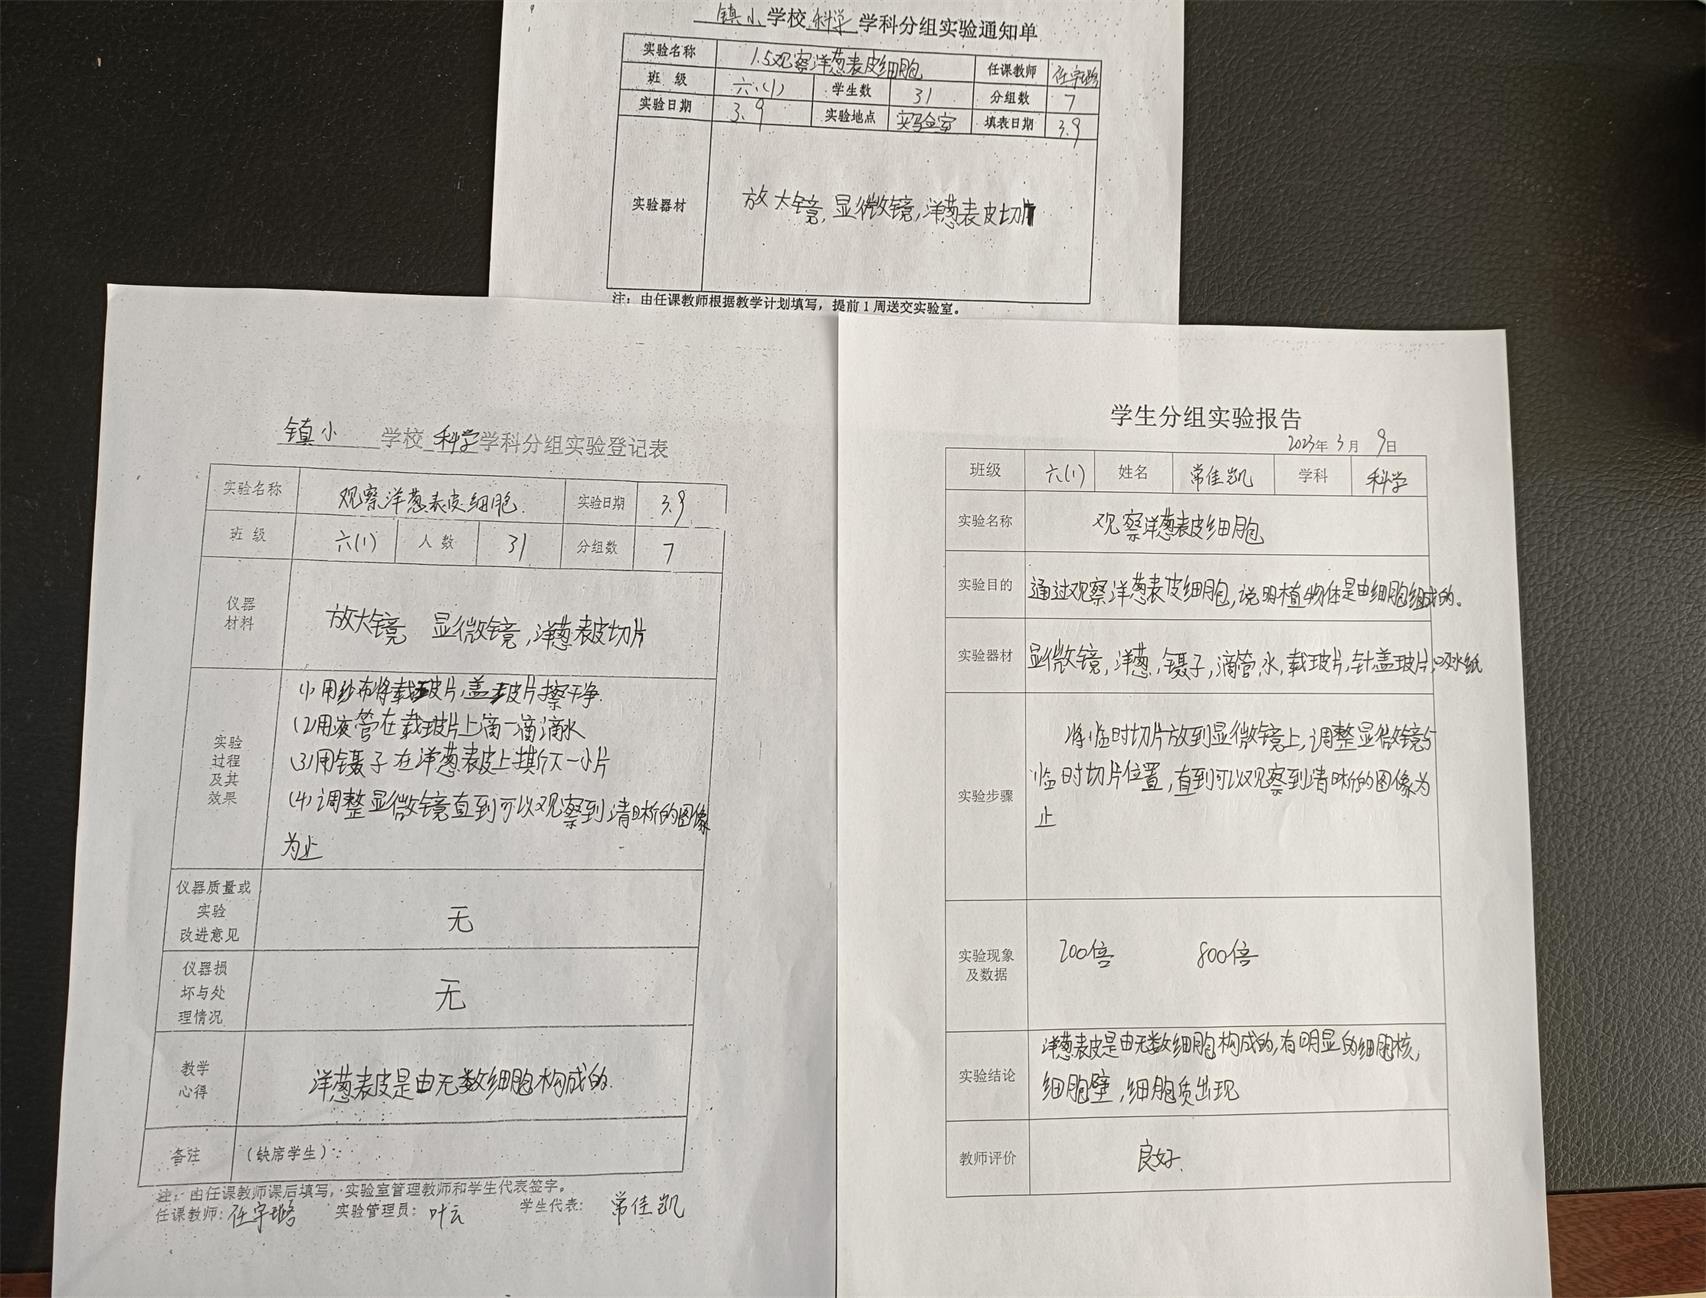 镇小学校科学学科分组实验通知单
实验名称 1.5观察洋葱表皮细胞 任课教师 任宇璐
班级 六(1) 学生数 31 分组数 7
实验日期 3.9 实验地点 实验室 填表日期 3.9
实验器材 放大镜,显微镜,洋葱表皮切片
注:由任课教师根据教学计划填写,提前1周送交实验室。
镇小学校科学学科分组实验登记表
实验名称 观察洋葱表皮细胞. 实验日期 3.9
班级 六(1) 人数 31 分组数 7
仪器
材料
放大镜 显微镜,洋葱表皮切片
实验
过程
及其
效果
(1)用纱布将载玻片,盖玻片擦干净.
(2)用滴管在载玻片上滴一滴滴水
(3)用镊子在洋葱表皮上撕下一小片
(4)调整显微镜直到可以观察到清晰的图像
为止
仪器质量或
实验
改进意见
无
仪器损
坏与处
理情况
无
教学
心得
洋葱表皮是由无数细胞构成的.
备注 (缺席学生):
注:由任课教师课后填写,实验室管理教师和学生代表签字。
任课教师:任宇璐 实验管理员:叶云 学生代表:常佳凯
学生分组实验报告
2023年3月9日
班级 六(1) 姓名 常佳凯 学科 科学
实验名称 观察洋葱表皮细胞
实验目的 通过观察洋葱表皮细胞,说明植物体是由细胞组成的。
实验器材 显微镜,洋葱,镊子,滴管,水,载玻片,针,盖玻片,吸水纸
实验步骤
将临时切片放到显微镜上,调整显微镜与
临时切片位置,直到可以观察到清晰的图像为
止
实验现象
及数据
200倍 800倍
实验结论
洋葱表皮是由无数细胞构成的,有明显的细胞核,
细胞壁,细胞质出现
教师评价 良好.